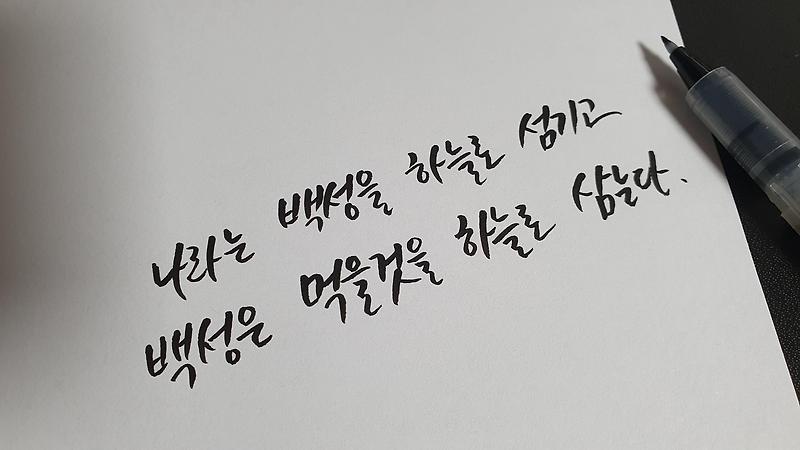 나라는 백성을 하늘로 섬기고
백성은 먹을것을 하늘로 삼는다.